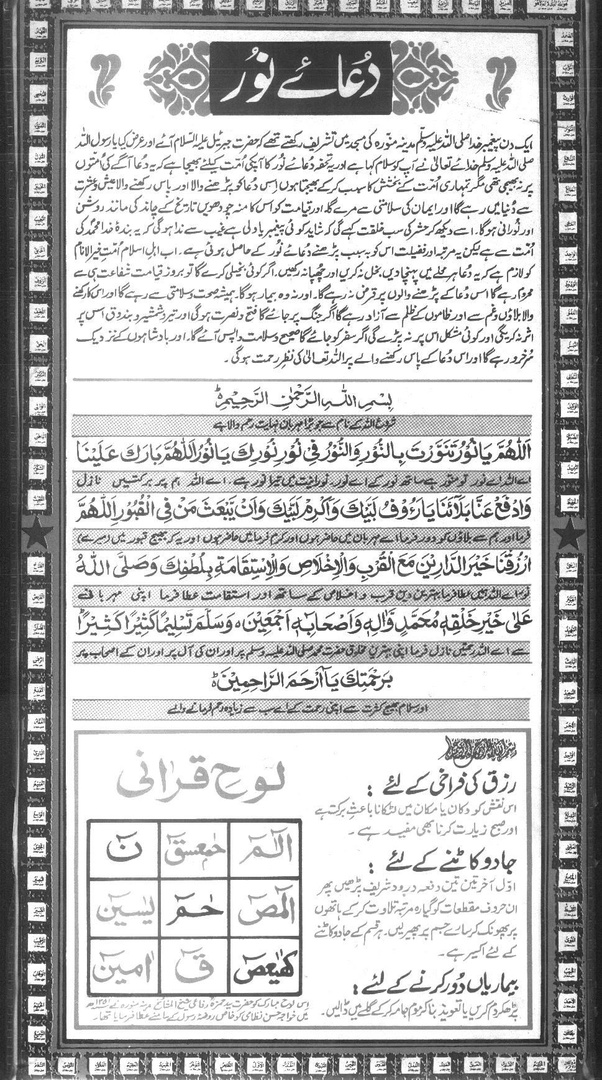 دُعائے نُور
ایک دن پیغمبر خدا صلی اللہ علیہ وسلم مدینہ منورہ کی مسجد میں تشریف رکھتے تھے کہ حضرت جبرئیل علیہ السلام آئے اور عرض کیا یا رسول اللہ
صلی اللہ علیہ وسلم خدائے تعالیٰ نے آپ کو سلام کہا ہے اور یہ تحفہ دعائے نور کا آپکی اُمت کیلئے بھیجا ہے کہ یہ دعا آگے کی اُمتوں
پر نہ بھیجی تھی مگر تمہاری اُمت کے بخشش کا سبب کر کے بھیجتا ہوں اِس دُعا کو پڑھنے والا اور پاس رکھنے والا عیش و عشرت
سے دُنیا میں رہے گا اور ایمان کی سلامتی سے مرے گا۔ اور قیامت کو اُس کا منہ چودھویں تاریخ کے چاند کی مانند روشن
اور نورانی ہوگا۔ اسے دیکھ کر حشر کی سب خلقت کہے گی کہ شاید کوئی پیغمبر یا ولی ہے غیب سے ندا ہوگی کہ یہ بندۂ خدا محمد کی
اُمت سے ہے لیکن یہ مرتبہ اور فضیلت اس کو بہ سبب پڑھنے دُعائے نُور کے حاصل ہوئی ہے۔ اب اہل اسلام اُمتِ خیر الانام
کو لازم ہے کہ یہ دُعا ہر محلے میں پہنچا دیں، بخل نہ کریں اور چھپا نہ رکھیں، اگر کوئی بخیلی کرے گا تو بروز قیامت شفاعت نبی سے
محروم رہے گا اس دُعا کے پڑھنے والوں پر قرض نہ رہے گا۔ اور نہ وہ بیمار ہوگا۔ ہمیشہ صحت و سلامتی سے رہے گا اور اس کا رکھنے
والا بلاؤں و غم سے اور ظالموں کے ظلم سے آزاد رہے گا اگر جنگ پر جائے گا فتح و نصرت ہوگی اور تیر و شمشیر و بندوق اس پر
اثر نہ کریگی اور کوئی مشکل اس پر نہ پڑے گی اگر سفر کو جائے گا صحیح و سلامت واپس آئے گا۔ اور بادشاہوں کے نزدیک
سُرخرو رہے گا اور اس دُعا کے پاس رکھنے والے پر اللہ تعالیٰ کی نظرِ رحمت ہوگی۔
بِسْمِ اللہِ الرَّحْمٰنِ الرَّحِیْمِ ط
شروع اللہ کے نام سے جو بڑا مہربان نہایت رحم والا ہے
اَللّٰھُمَّ یَا نُوْرُ تَنَوَّرْتَ بِالنُّوْرِ وَالنُّوْرُ فِیْ نُوْرِ نُوْرِكَ یَا نُوْرُ اَللّٰھُمَّ بَارِكْ عَلَیْنَا
اے اللہ اے نور تو منور ہے ساتھ نور کے اے نور۔ نورانیت میں تیرا نور ہے۔ اے اللہ ہم پر برکتیں نازل
وَادْفَعْ عَنَّا بَلَآئَنَا یَا رَءُوْفُ لَبَّیْكَ وَاَكْرِمْ لَبَّیْكَ وَاَنْ تَبْعَثَ مَنْ فِی الْقُبُوْرِ اَللّٰھُمَّ
فرما اور ہم سے بلاؤں کو دور فرما اے مہربان میں حاضر ہوں اور کرم فرما میں حاضر ہوں اور یہ کہ بھیج قبور میں
ارْزُقْنَا خَیْرَ الدَّارَیْنِ مَعَ الْقُرْبِ وَالْاِخْلَاصِ وَالْاِسْتِقَامَةِ بِلُطْفِكَ وَصَلَّی اللّٰهُ
نور اے اللہ ہمیں عطا فرما بہترین دین قرب و اخلاص کے ساتھ اور استقامت عطا فرما اپنی مہربانی سے
عَلٰی خَیْرِ خَلْقِهٖ مُحَمَّدٍ وَّاٰلِهٖ وَاَصْحَابِهٖ اَجْمَعِیْنَ ہ وَسَلَّمَ تَسْلِیْمًا كَثِیْرًا كَثِیْرًا
سے اے اللہ رحمتیں نازل فرما اپنی بہترین مخلوق حضرت محمد صلی اللہ علیہ وسلم پر اور ان کی آل پر اور ان کے اصحاب پر
بِرَحْمَتِكَ یَا اَرْحَمَ الرَّاحِمِیْنَ ط
اور سلام بھیج کثرت سے اپنی رحمت کے اے سب سے زیادہ رحم فرمانے والے
بسم اللہ الرحمن الرحیم
رزق کی فراخی کے لئے :
اس نقش کو دکان یا مکان میں لٹکانا باعثِ برکت ہے
اور صبح زیارت کرنا بھی مفید ہے۔
جادو کاٹنے کے لئے :
اوّل آخر تین تین دفعہ درود شریف پڑھیں پھر
ان حروف مقطعات کو گیارہ مرتبہ تلاوت کر کے ہاتھوں
پر پھونک کر سارے جسم پر پھیریں۔ ہر قسم کے جادو کاٹنے
کے لئے اکسیر ہے۔
بیماریاں دُور کرنے کے لئے :
پڑھکر دم کریں یا تعویذ بنا کر موم جامہ کر کے گلے میں ڈالیں۔
لوحِ قرآنی
الٓمّٓ حٰمٓعٓسٓقٓ نٓ
الٓمّٓصٓ حٰمٓ یٰسٓین
كٓهٰیٰعٓصٓ قٓ آمین
اس لوح مبارک کو حضرت سید حمزہ رفاعی شیخ المشائخ مدینہ منورہ نے
میں خواجہ حسن نظامی کو خاص روضۂ رسول کے سامنے عطا فرمایا تھا۔